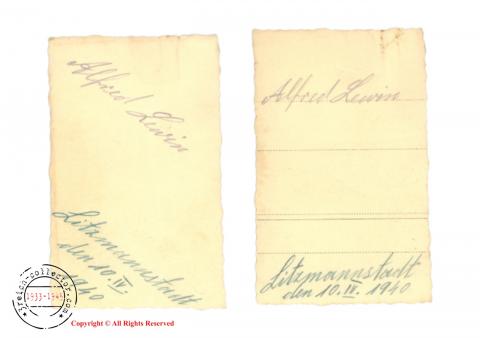 Alfred Lewin
Litzmannstadt
den 10. IV.
1940
Alfred Lewin
Litzmannstadt
den 10. IV. 1940
3reich-collector.com
1933-1945
Copyright © All Rights Reserved